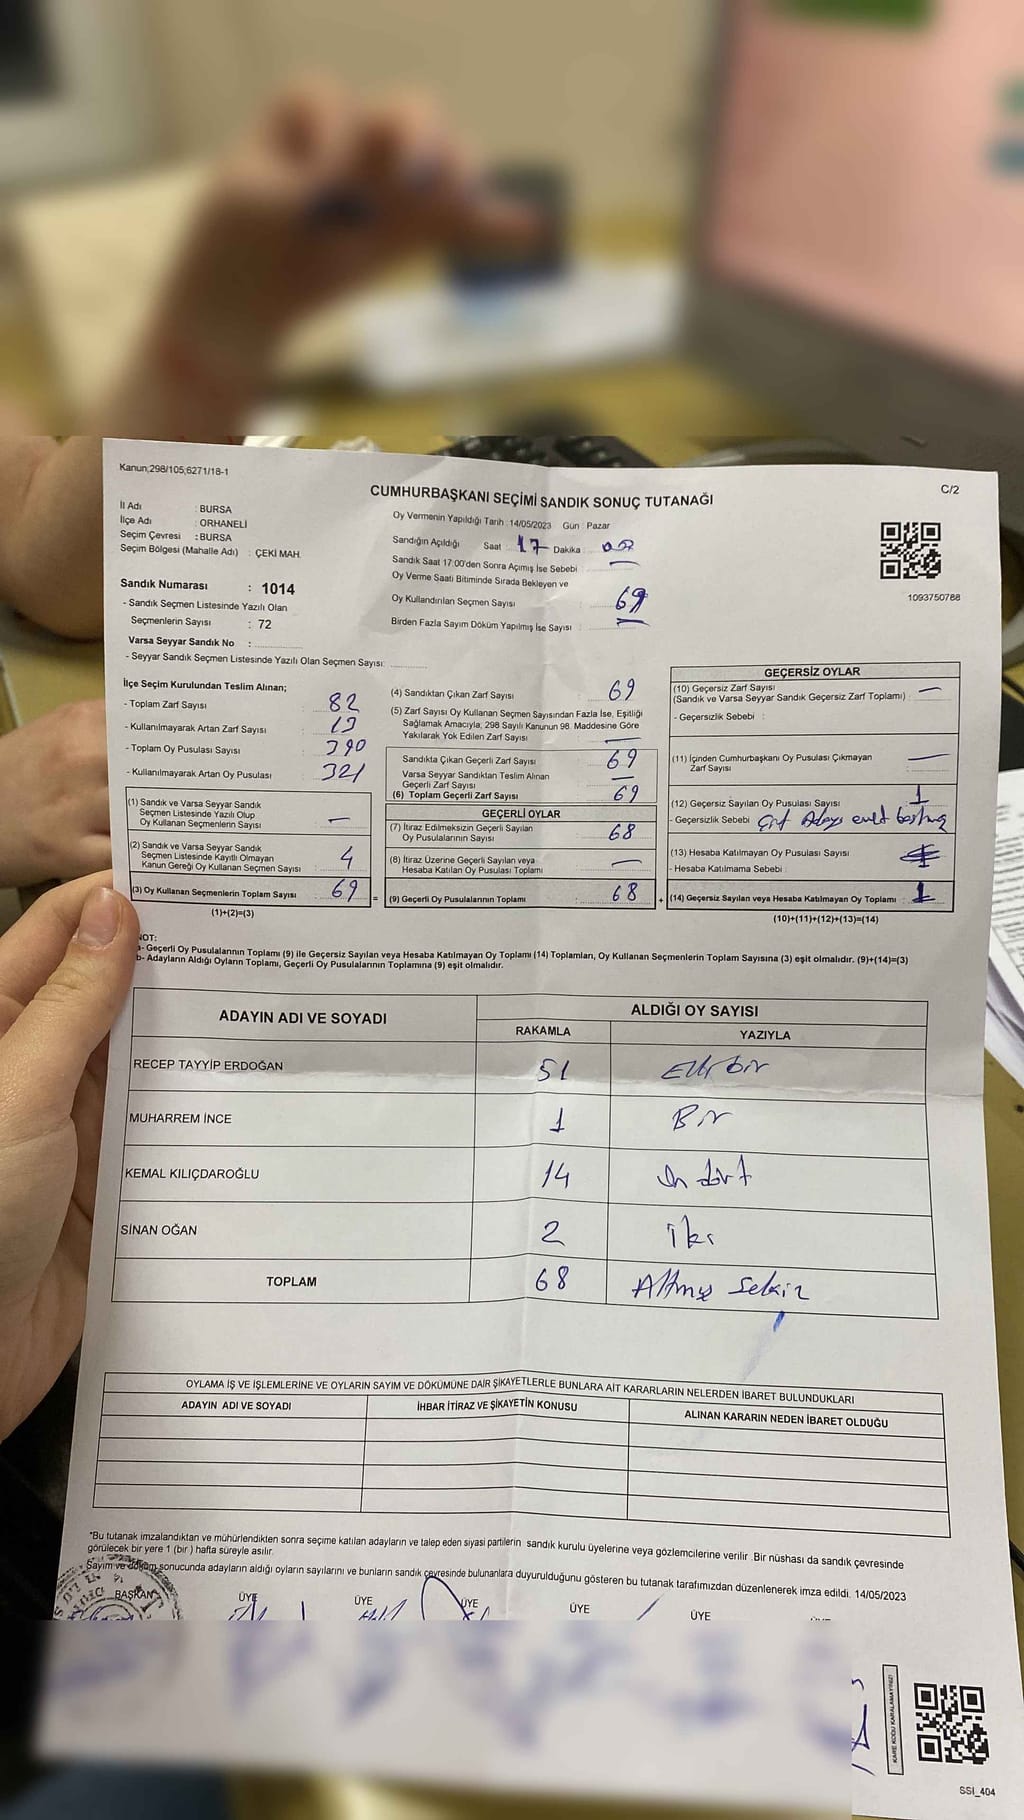 Kanun;298/105;6271/18-1
C/2
CUMHURBAŞKANI SEÇİMİ SANDIK SONUÇ TUTANAĞI
İl Adı : BURSA
İlçe Adı : ORHANELİ
Seçim Çevresi : BURSA
Seçim Bölgesi (Mahalle Adı) : ÇEKİ MAH.
Oy Vermenin Yapıldığı Tarih : 14/05/2023 Gün : Pazar
Sandığın Açıldığı Saat : 17 Dakika : 00
Sandık Saat 17:00'den Sonra Açımış İse Sebebi : —
Oy Verme Saati Bitiminde Sırada Bekleyen ve
Oy Kullandırılan Seçmen Sayısı : 69
Birden Fazla Sayım Döküm Yapılmış İse Sayısı : —
1093750788
Sandık Numarası : 1014
- Sandık Seçmen Listesinde Yazılı Olan
Seçmenlerin Sayısı : 72
Varsa Seyyar Sandık No :
- Seyyar Sandık Seçmen Listesinde Yazılı Olan Seçmen Sayısı:
İlçe Seçim Kurulundan Teslim Alınan;
- Toplam Zarf Sayısı : 82
- Kullanılmayarak Artan Zarf Sayısı : 13
- Toplam Oy Pusulası Sayısı : 390
- Kullanılmayarak Artan Oy Pusulası : 321
(1) Sandık ve Varsa Seyyar Sandık
Seçmen Listesinde Yazılı Olup
Oy Kullanan Seçmenlerin Sayısı : —
(2) Sandık ve Varsa Seyyar Sandık
Seçmen Listesinde Kayıtlı Olmayan
Kanun Gereği Oy Kullanan Seçmen Sayısı : 4
(3) Oy Kullanan Seçmenlerin Toplam Sayısı : 69 =
(1)+(2)=(3)
(4) Sandıktan Çıkan Zarf Sayısı : 69
(5) Zarf Sayısı Oy Kullanan Seçmen Sayısından Fazla İse, Eşitliği
Sağlamak Amacıyla, 298 Sayılı Kanunun 98. Maddesine Göre
Yakılarak Yok Edilen Zarf Sayısı : —
Sandıkta Çıkan Geçerli Zarf Sayısı : 69
Varsa Seyyar Sandıktan Teslim Alınan
Geçerli Zarf Sayısı : —
(6) Toplam Geçerli Zarf Sayısı : 69
GEÇERLİ OYLAR
(7) İtiraz Edilmeksizin Geçerli Sayılan
Oy Pusulalarının Sayısı : 68
(8) İtiraz Üzerine Geçerli Sayılan veya
Hesaba Katılan Oy Pusulası Toplamı : —
(9) Geçerli Oy Pusulalarının Toplamı : 68 +
GEÇERSİZ OYLAR
(10) Geçersiz Zarf Sayısı
(Sandık ve Varsa Seyyar Sandık Geçersiz Zarf Toplamı) : —
- Geçersizlik Sebebi :
(11) İçinden Cumhurbaşkanı Oy Pusulası Çıkmayan
Zarf Sayısı : —
(12) Geçersiz Sayılan Oy Pusulası Sayısı : 1
- Geçersizlik Sebebi : Çift Adaya evet basılmış
(13) Hesaba Katılmayan Oy Pusulası Sayısı :
- Hesaba Katılmama Sebebi :
(14) Geçersiz Sayılan veya Hesaba Katılmayan Oy Toplamı : 1
(10)+(11)+(12)+(13)=(14)
NOT:
a- Geçerli Oy Pusulalarının Toplamı (9) ile Geçersiz Sayılan veya Hesaba Katılmayan Oy Toplamı (14) Toplamları, Oy Kullanan Seçmenlerin Toplam Sayısına (3) eşit olmalıdır. (9)+(14)=(3)
b- Adayların Aldığı Oyların Toplamı, Geçerli Oy Pusulalarının Toplamına (9) eşit olmalıdır.
ADAYIN ADI VE SOYADI ALDIĞI OY SAYISI
RAKAMLA YAZIYLA
RECEP TAYYİP ERDOĞAN 51 Ellibir
MUHARREM İNCE 1 Bir
KEMAL KILIÇDAROĞLU 14 On dört
SİNAN OĞAN 2 İki
TOPLAM 68 Altmış Sekiz
OYLAMA İŞ VE İŞLEMLERİNE VE OYLARIN SAYIM VE DÖKÜMÜNE DAİR ŞİKAYETLERLE BUNLARA AİT KARARLARIN NELERDEN İBARET BULUNDUKLARI
ADAYIN ADI VE SOYADI İHBAR İTİRAZ VE ŞİKAYETİN KONUSU ALINAN KARARIN NEDEN İBARET OLDUĞU
"Bu tutanak imzalandıktan ve mühürlendikten sonra seçime katılan adayların ve talep eden siyasi partilerin sandık kurulu üyelerine veya gözlemcilerine verilir .Bir nüshası da sandık çevresinde
görülecek bir yere 1 (bir ) hafta süreyle asılır.
Sayım ve döküm sonucunda adayların aldığı oyların sayılarını ve bunların sandık çevresinde bulunanlara duyurulduğunu gösteren bu tutanak tarafımızdan düzenlenerek imza edildi. 14/05/2023
BAŞKAN ÜYE ÜYE ÜYE ÜYE ÜYE
KARE KODU KARALAMAYINIZ!
SSİ_404